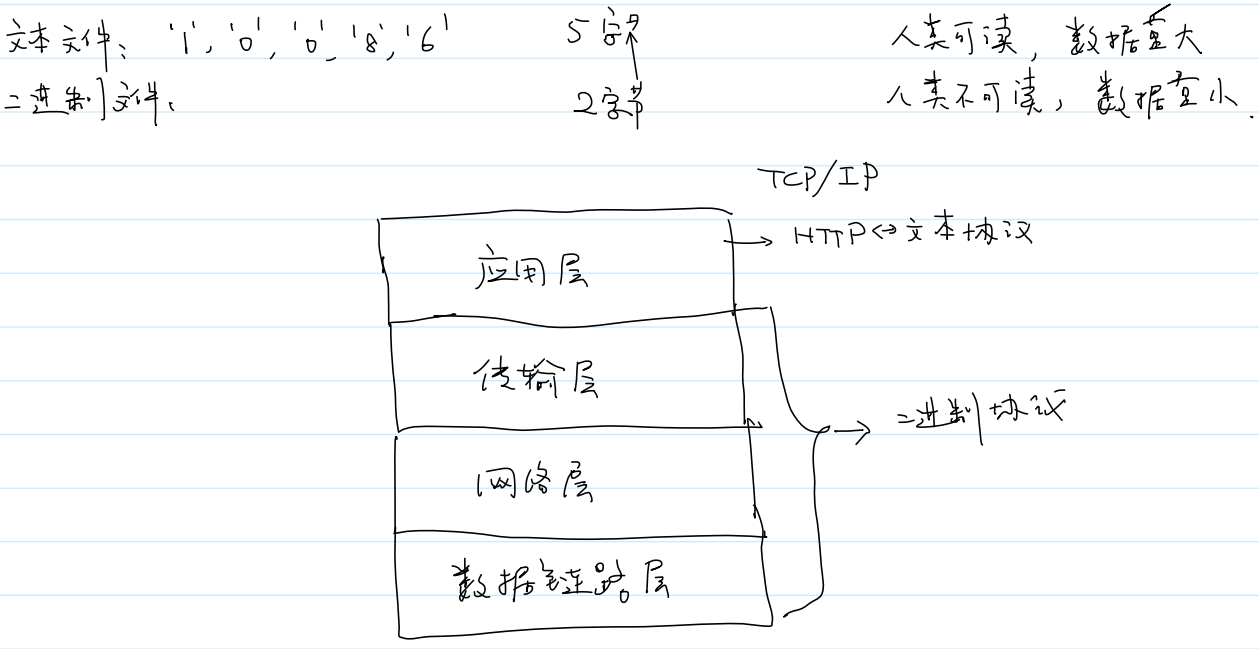 文本文件: '1', '0', '0', '8', '6' 5字节 人类可读, 数据量大
二进制文件: 2字节 人类不可读, 数据量小.
TCP/IP
应用层 → HTTP↔文本协议
传输层
二进制协议
网络层
数据链路层